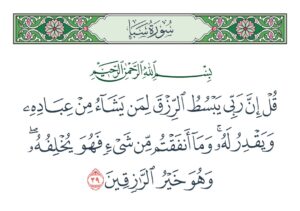 سُورَةُ سَبَإٍ
بِسْمِ ٱللَّهِ ٱلرَّحْمَٰنِ ٱلرَّحِيمِ
قُلْ إِنَّ رَبِّى يَبْسُطُ ٱلرِّزْقَ لِمَن يَشَآءُ مِنْ عِبَادِهِۦ
وَيَقْدِرُ لَهُۥ ۚ وَمَآ أَنفَقْتُم مِّن شَىْءٍ فَهُوَ يُخْلِفُهُۥ ۖ
وَهُوَ خَيْرُ ٱلرَّٰزِقِينَ ٣٩